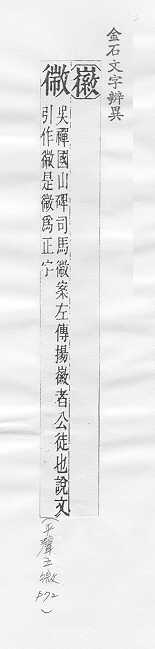 金石文字辨異
徽
徽 吳禪國山碑司馬徽案左傳揚徽者公徒也說文
引作微是徽為正字
(平聲五微
P72)